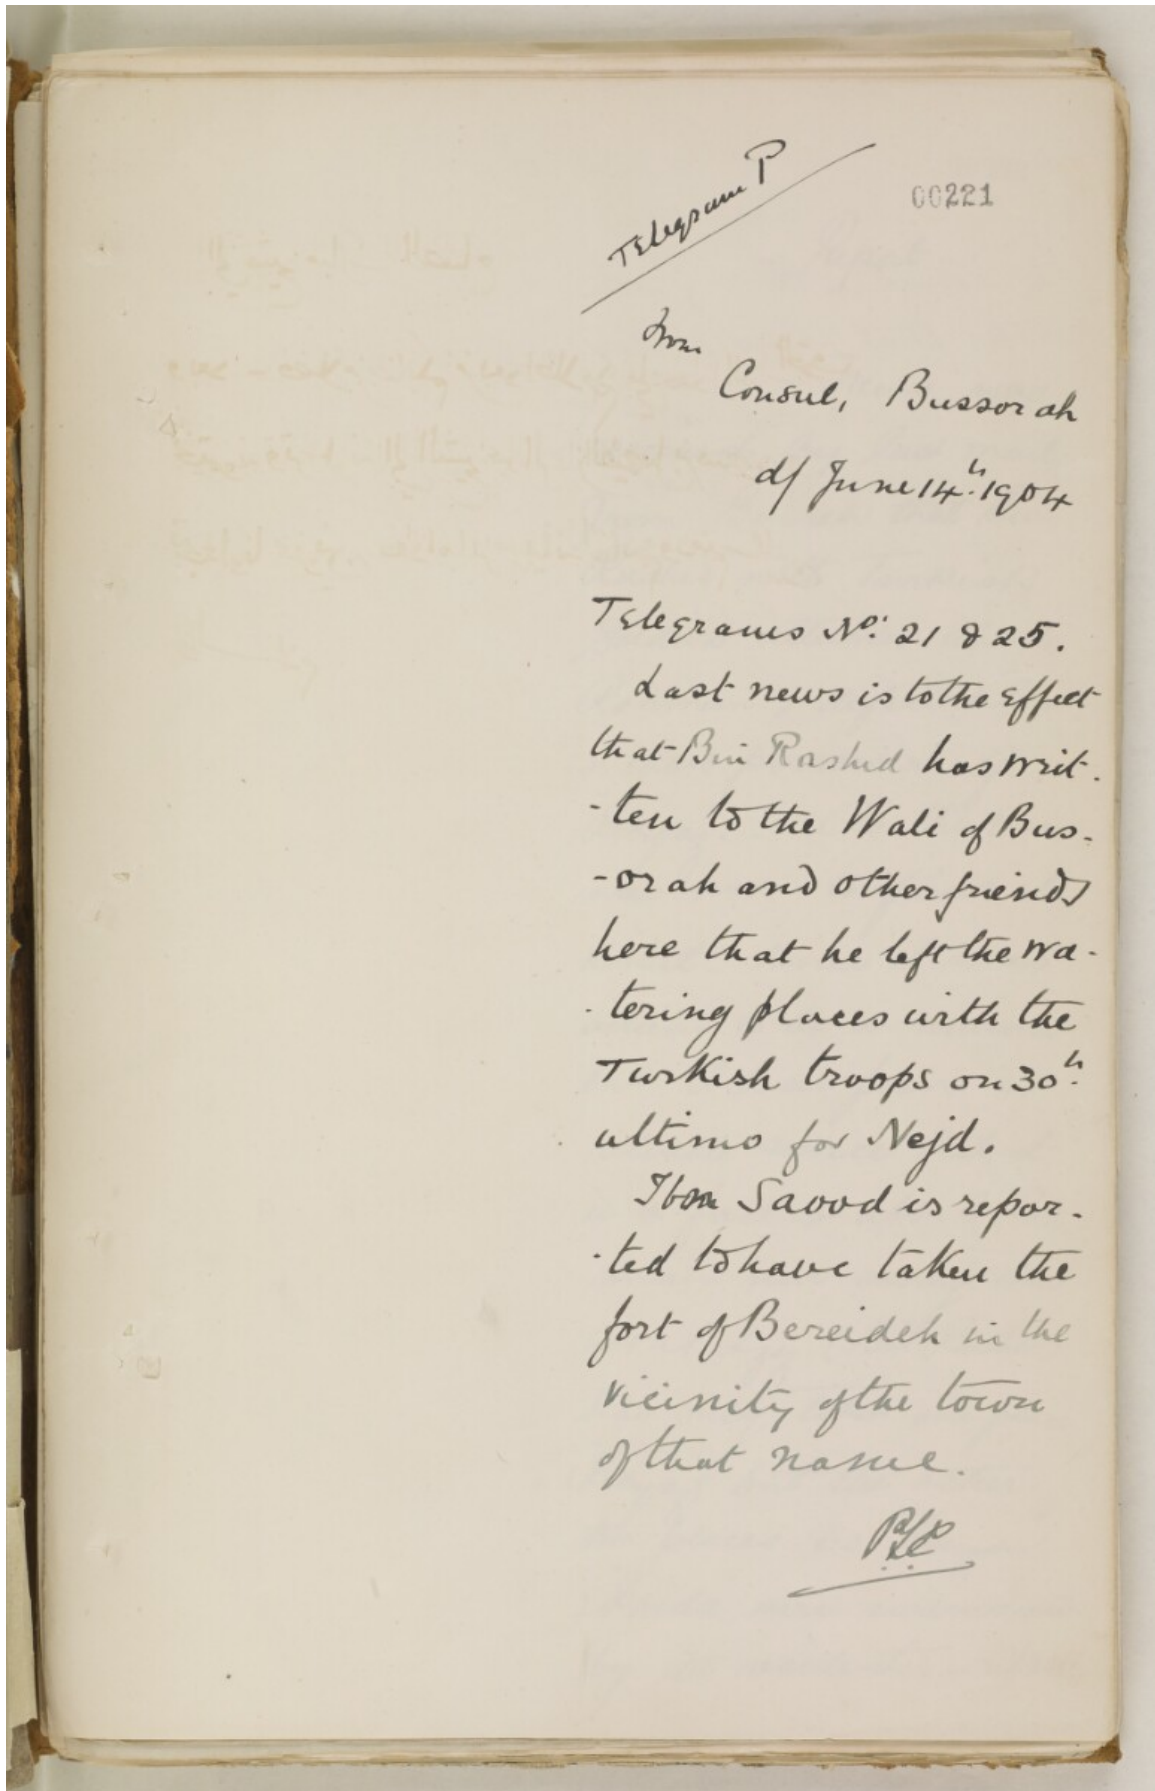 Telegram P
00221
From
Consul, Bussorah
d/ June 14th. 1904
Telegrams No: 21 & 25.
Last news is to the Effect
that Bin Rashid has writ-
-ten to the Wali of Bus-
-orah and other friends
here that he left the wa-
-tering places with the
Turkish troops on 30th.
ultimo for Nejd.
Ibn Saood is repor-
-ted to have taken the
fort of Bereideh in the
vicinity of the town
of that name.